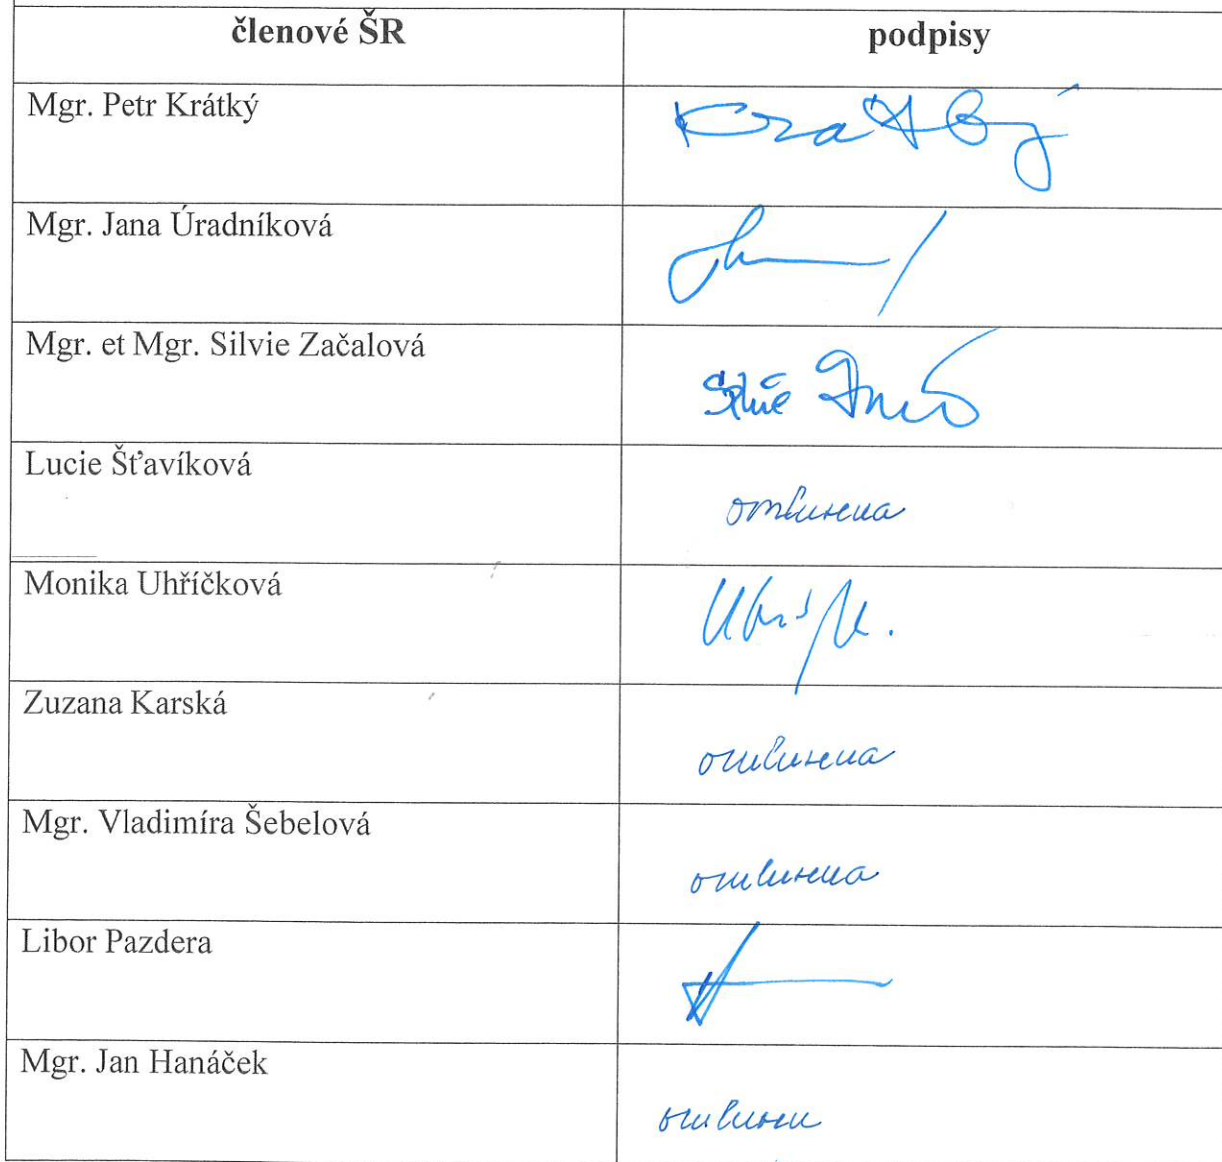 členové ŠR
podpisy
Mgr. Petr Krátký
Krátký
Mgr. Jana Úradníková
Mgr. et Mgr. Silvie Začalová
Silvie
Lucie Šťavíková
omluvena
Monika Uhříčková
Zuzana Karská
omluvena
Mgr. Vladimíra Šebelová
omluvena
Libor Pazdera
Mgr. Jan Hanáček
omluven